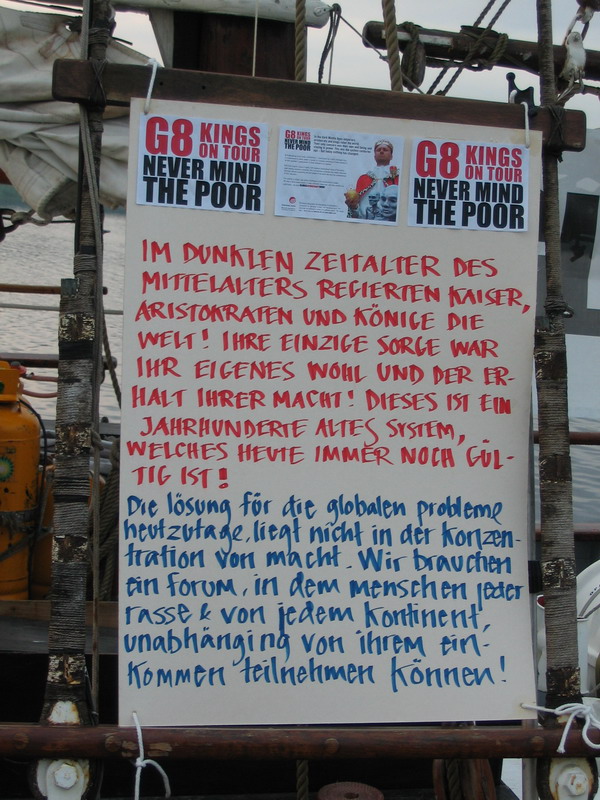 G8 KINGS
ON TOUR
NEVER MIND
THE POOR
G8 KINGS
ON TOUR
NEVER MIND
THE POOR
G8 KINGS
ON TOUR
NEVER MIND
THE POOR
IM DUNKLEN ZEITALTER DES
MITTELALTERS REGIERTEN KAISER,
ARISTOKRATEN UND KÖNIGE DIE
WELT! IHRE EINZIGE SORGE WAR
IHR EIGENES WOHL UND DER ER-
HALT IHRER MACHT! DIESES IST EIN
JAHRHUNDERTE ALTES SYSTEM,
WELCHES HEUTE IMMER NOCH GÜL-
TIG IST!
Die lösung für die globalen probleme
heutzutage, liegt nicht in der Konzen-
tration von macht. Wir brauchen
ein forum, in dem menschen jeder
rasse & von jedem Kontinent,
unabhänging von ihrem ein-
Kommen teilnehmen können!